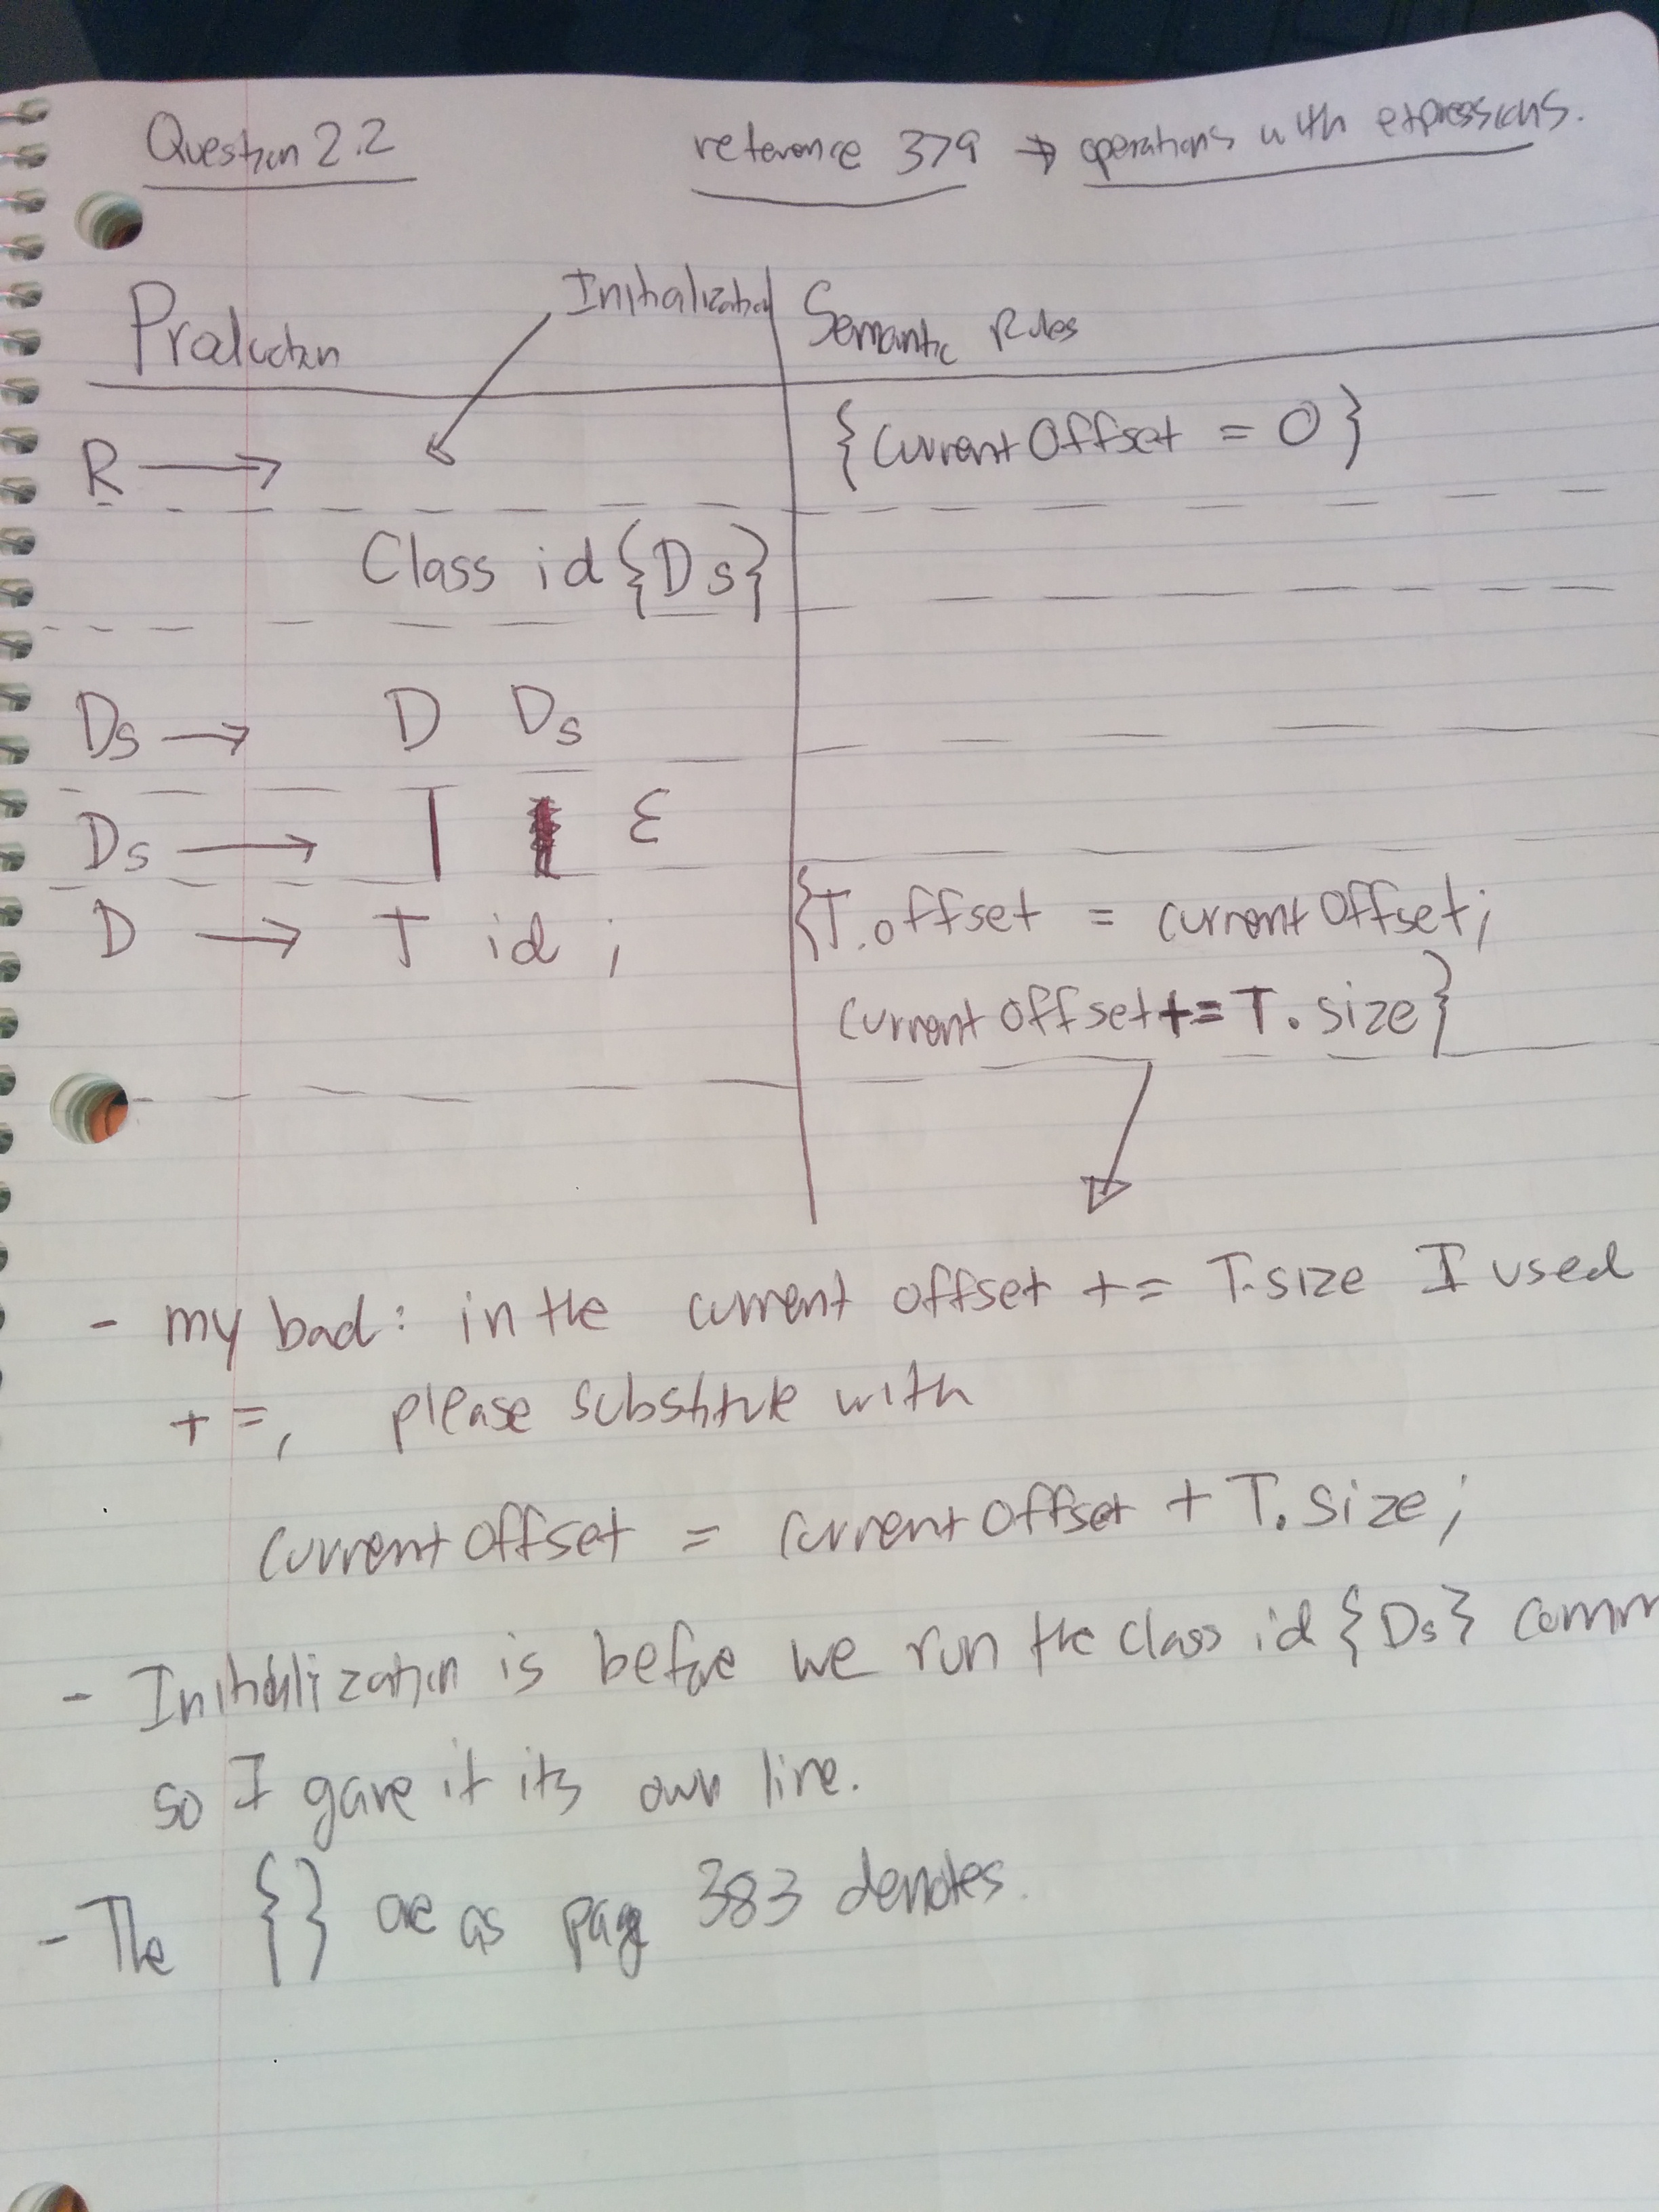 Question 2.2 reference 379 → operations with expressions.
Production Initialization Semantic Rules
R → {currentOffset = 0}
Class id {Ds}
Ds → D Ds
Ds → | ε
D → T id ; {T.offset = currentOffset;
currentOffset += T.size}
- my bad: in the current offset += T.size I used
+=, please substitute with
currentOffset = currentOffset + T.size;
- Initialization is before we run the class id {Ds} comm
so I gave it its own line.
- The {} are as page 383 denotes.